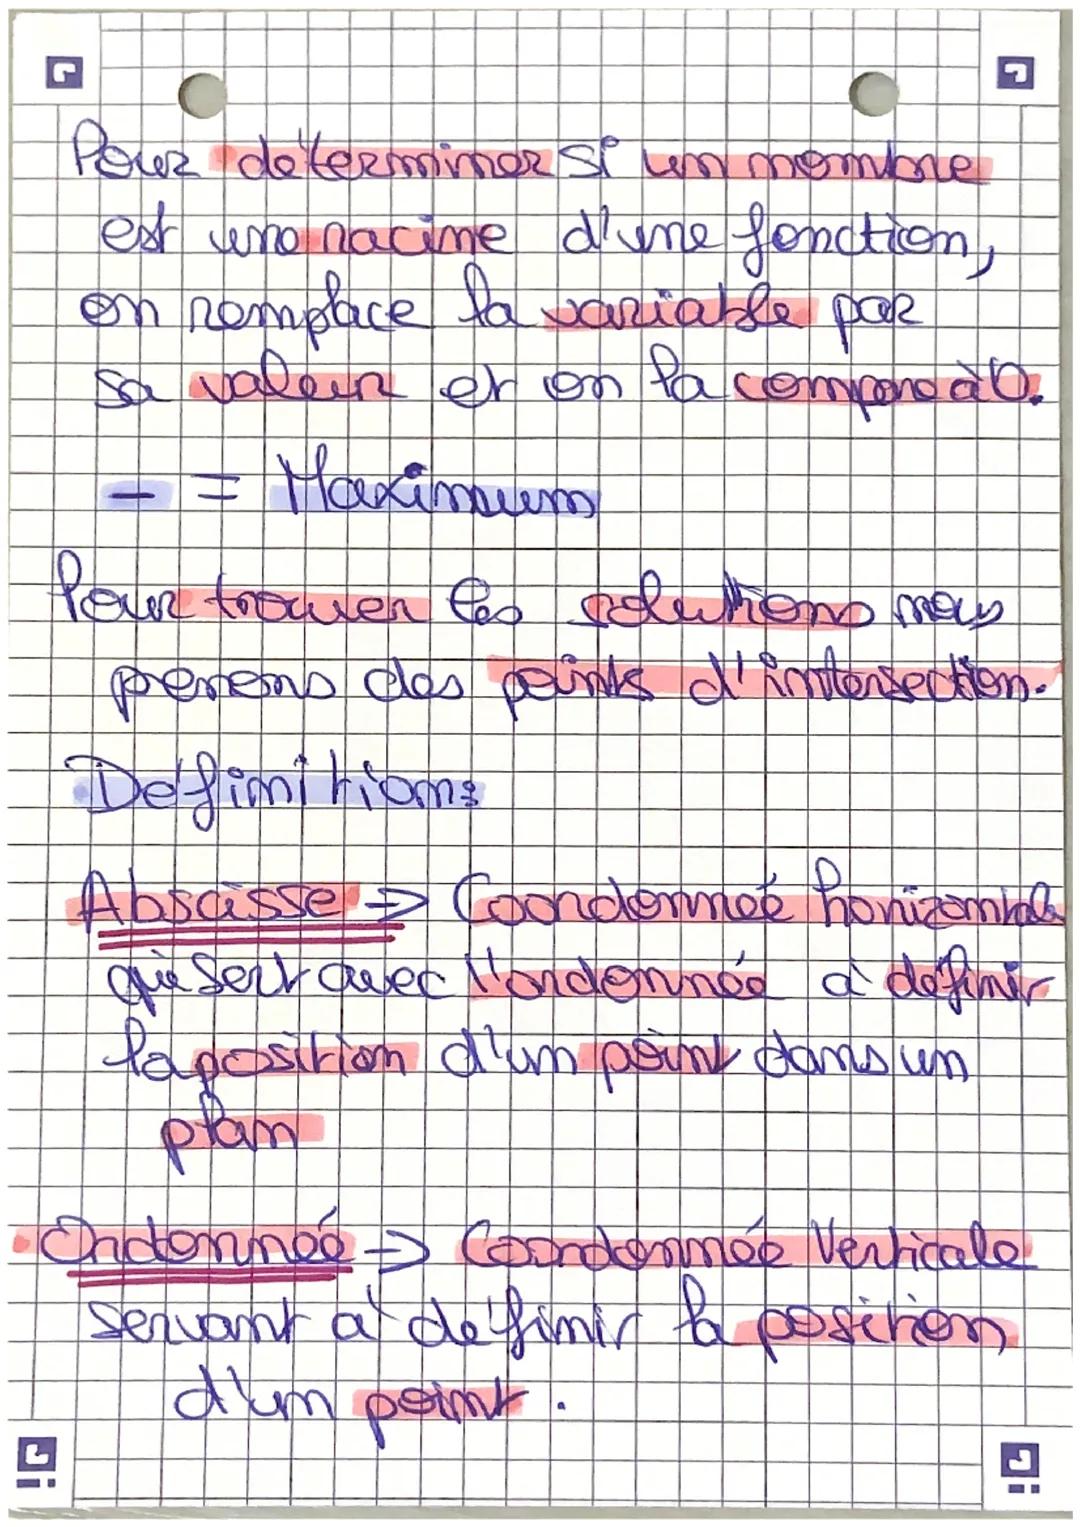 Pour déterminer si un nombre
est une racine d'une fonction,
on remplace la variable par
sa valeur et on la compare à 0.
- = Maximum
Pour trouver les solutions nous
prenons des points d'intersection.
Définition:
Abscisse => Coordonneé horizontale
qui sert avec l'ordonnée à définir
la position d'un point dans un
plan
Ordonneé => Coordonnée Verticale
servant à définir la position
d'un point.